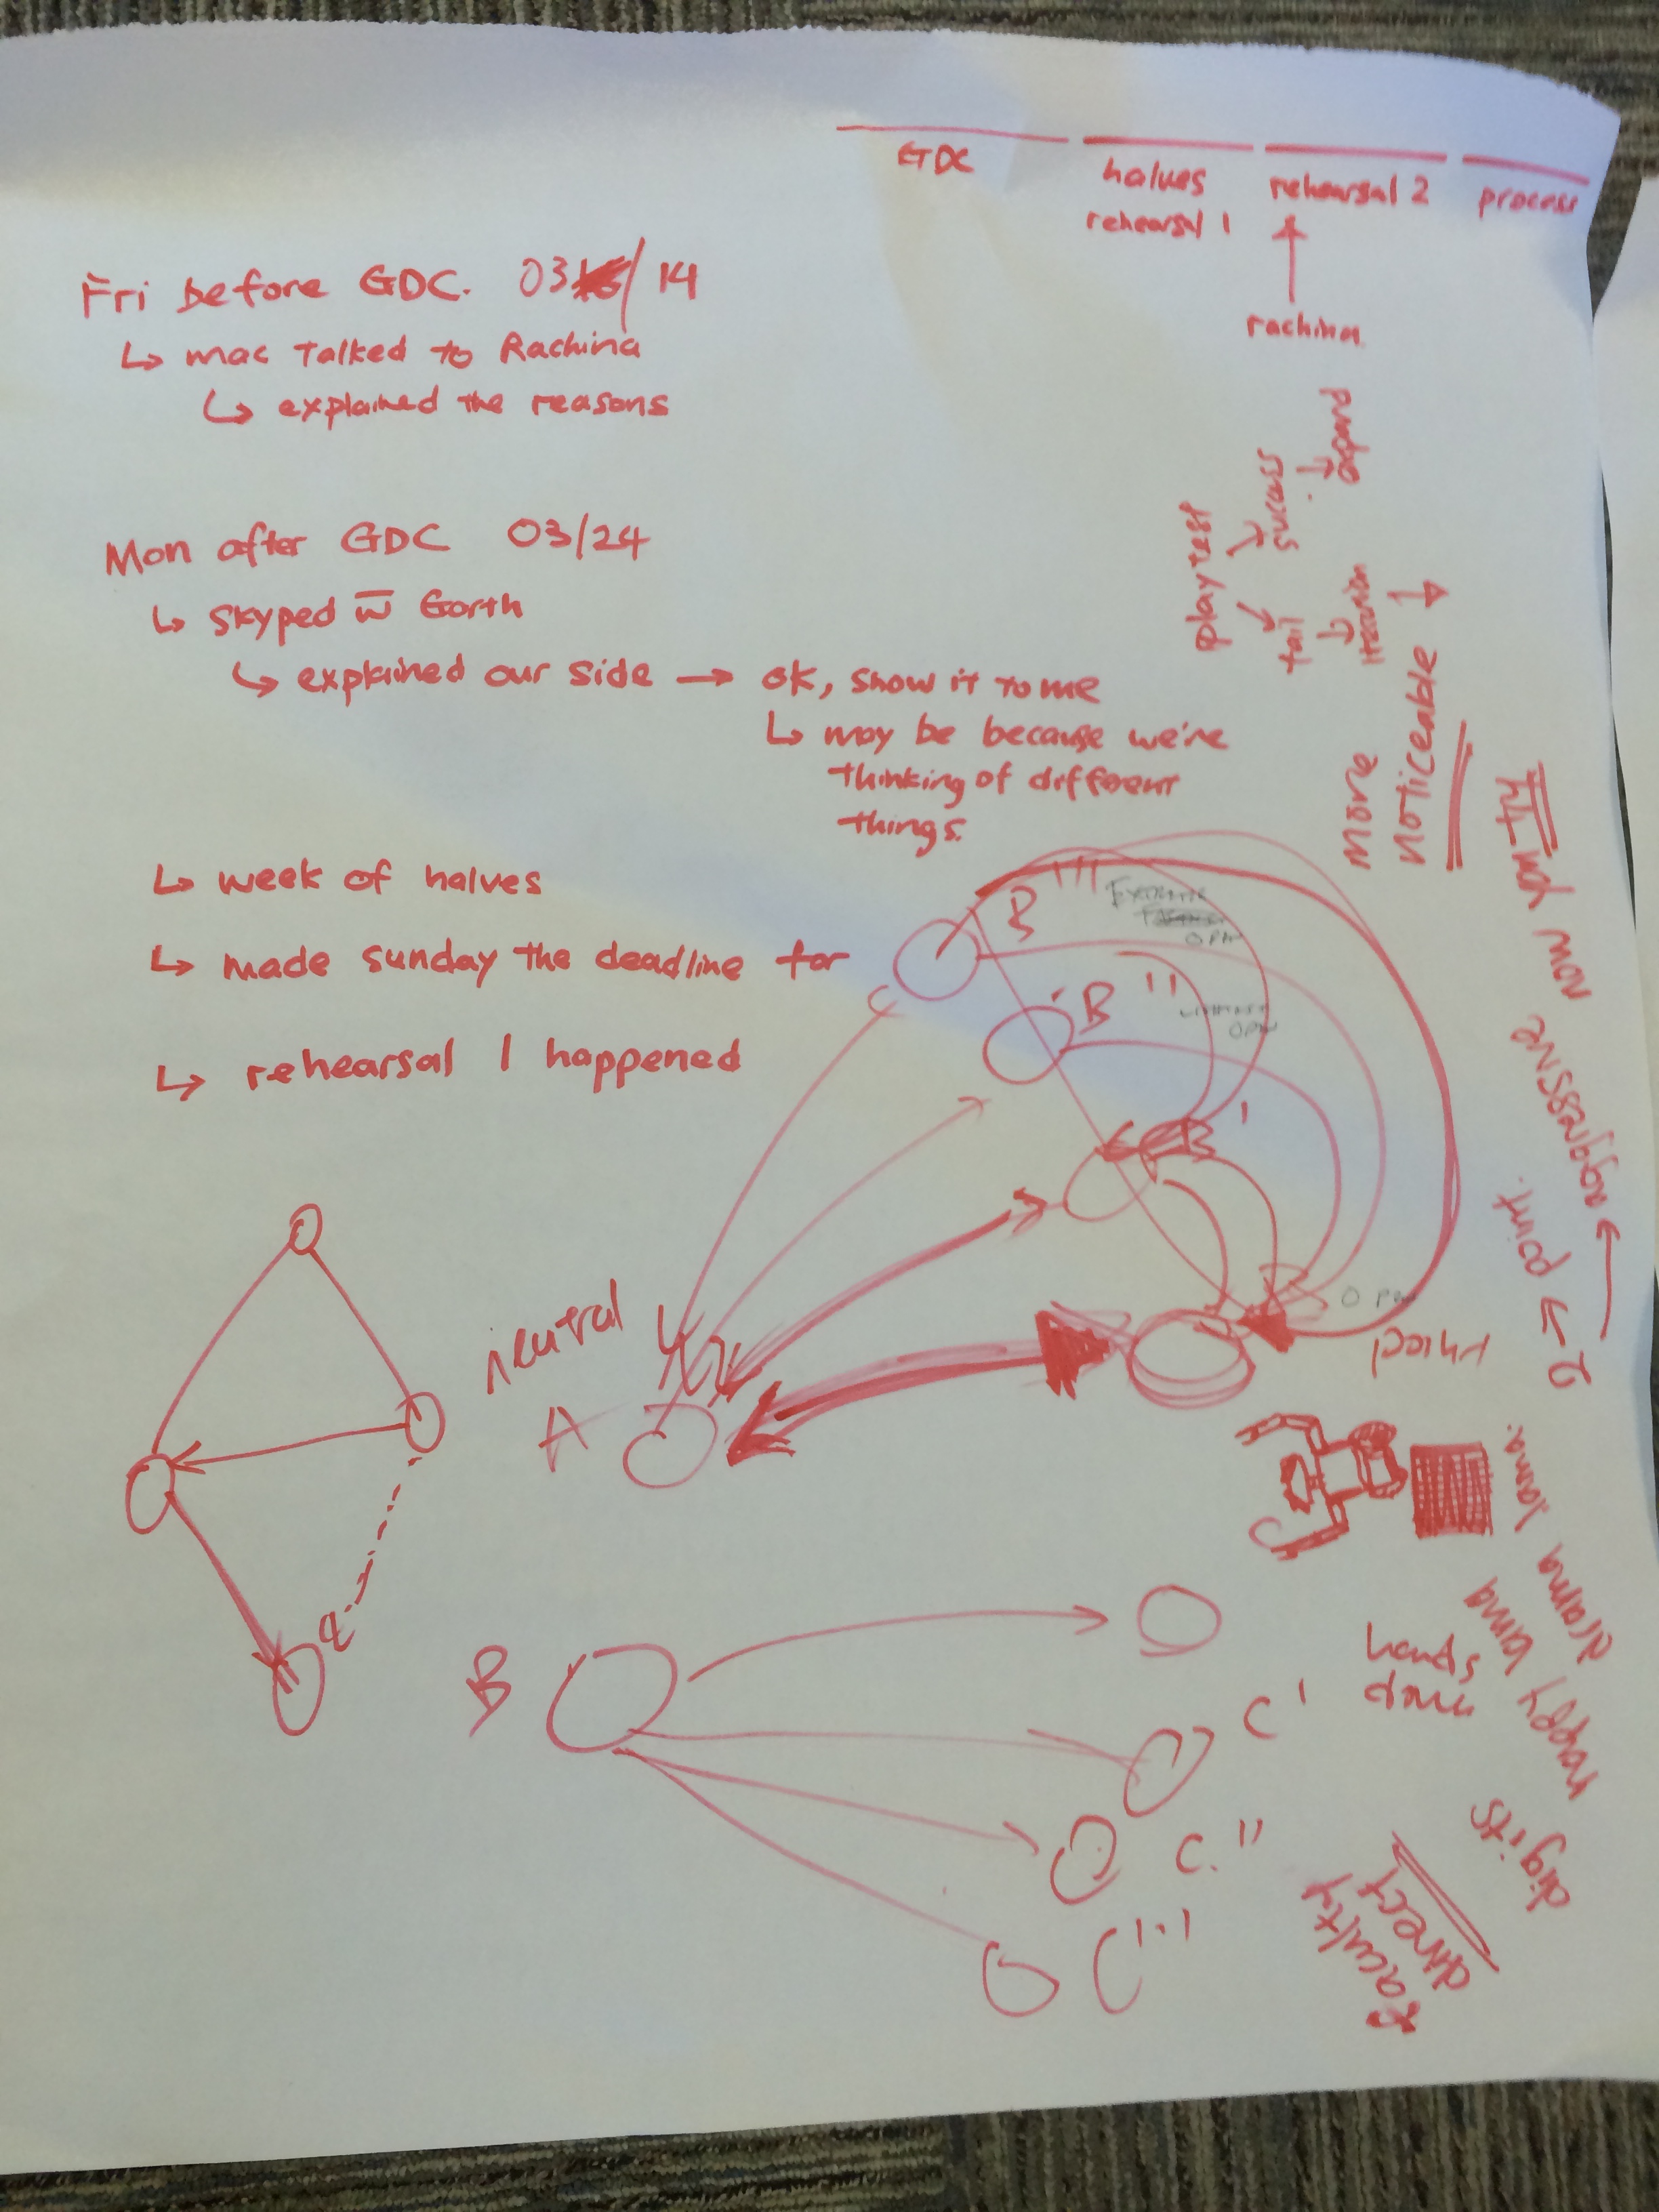 GDC
halves
rehearsal 1
rehearsal 2
process
rachina
Fri before GDC. 03/14
↳ mac talked to Rachina
↳ explained the reasons
Mon after GDC 03/24
↳ skyped w̄ Garth
↳ explained our side → ok, show it to me
↳ may be because we're
thinking of different
things.
↳ week of halves
↳ made sunday the deadline for
↳ rehearsal 1 happened
playtest
success
expand
fail
iteration
more
noticeable
now
aggressive
2 → point
B'''
OPN
B''
OPN
B'
neutral
A
B
C'
C''
C'''
hands
happy lama
drama lama.
digits
faculty
direct